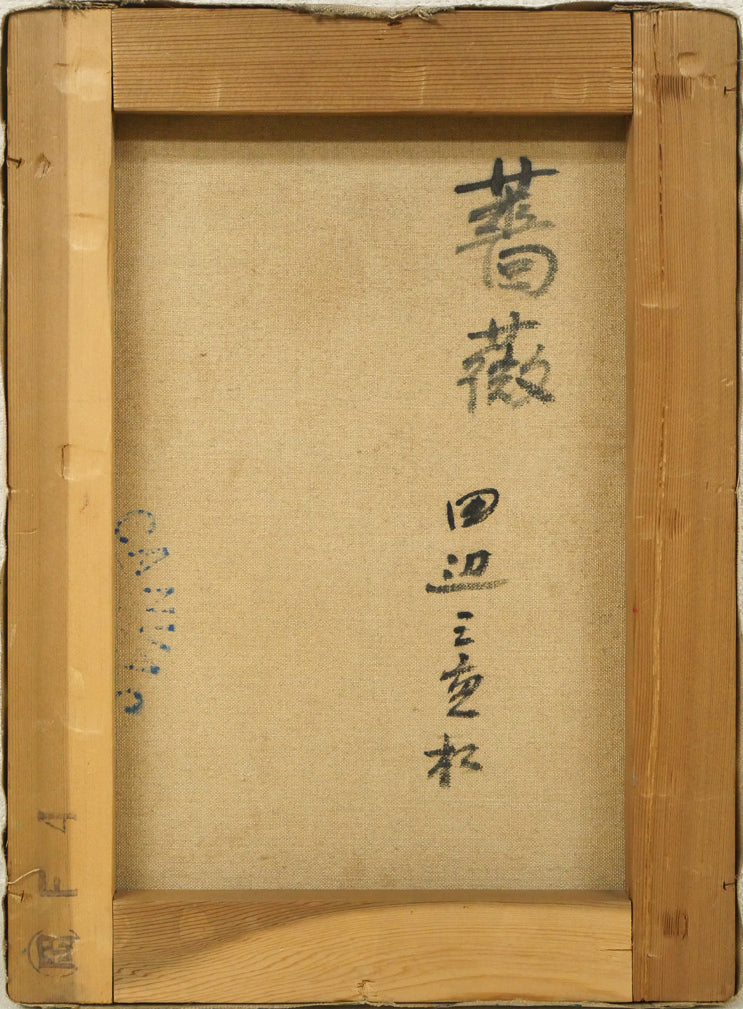 薔薇
田辺三重松
F 4